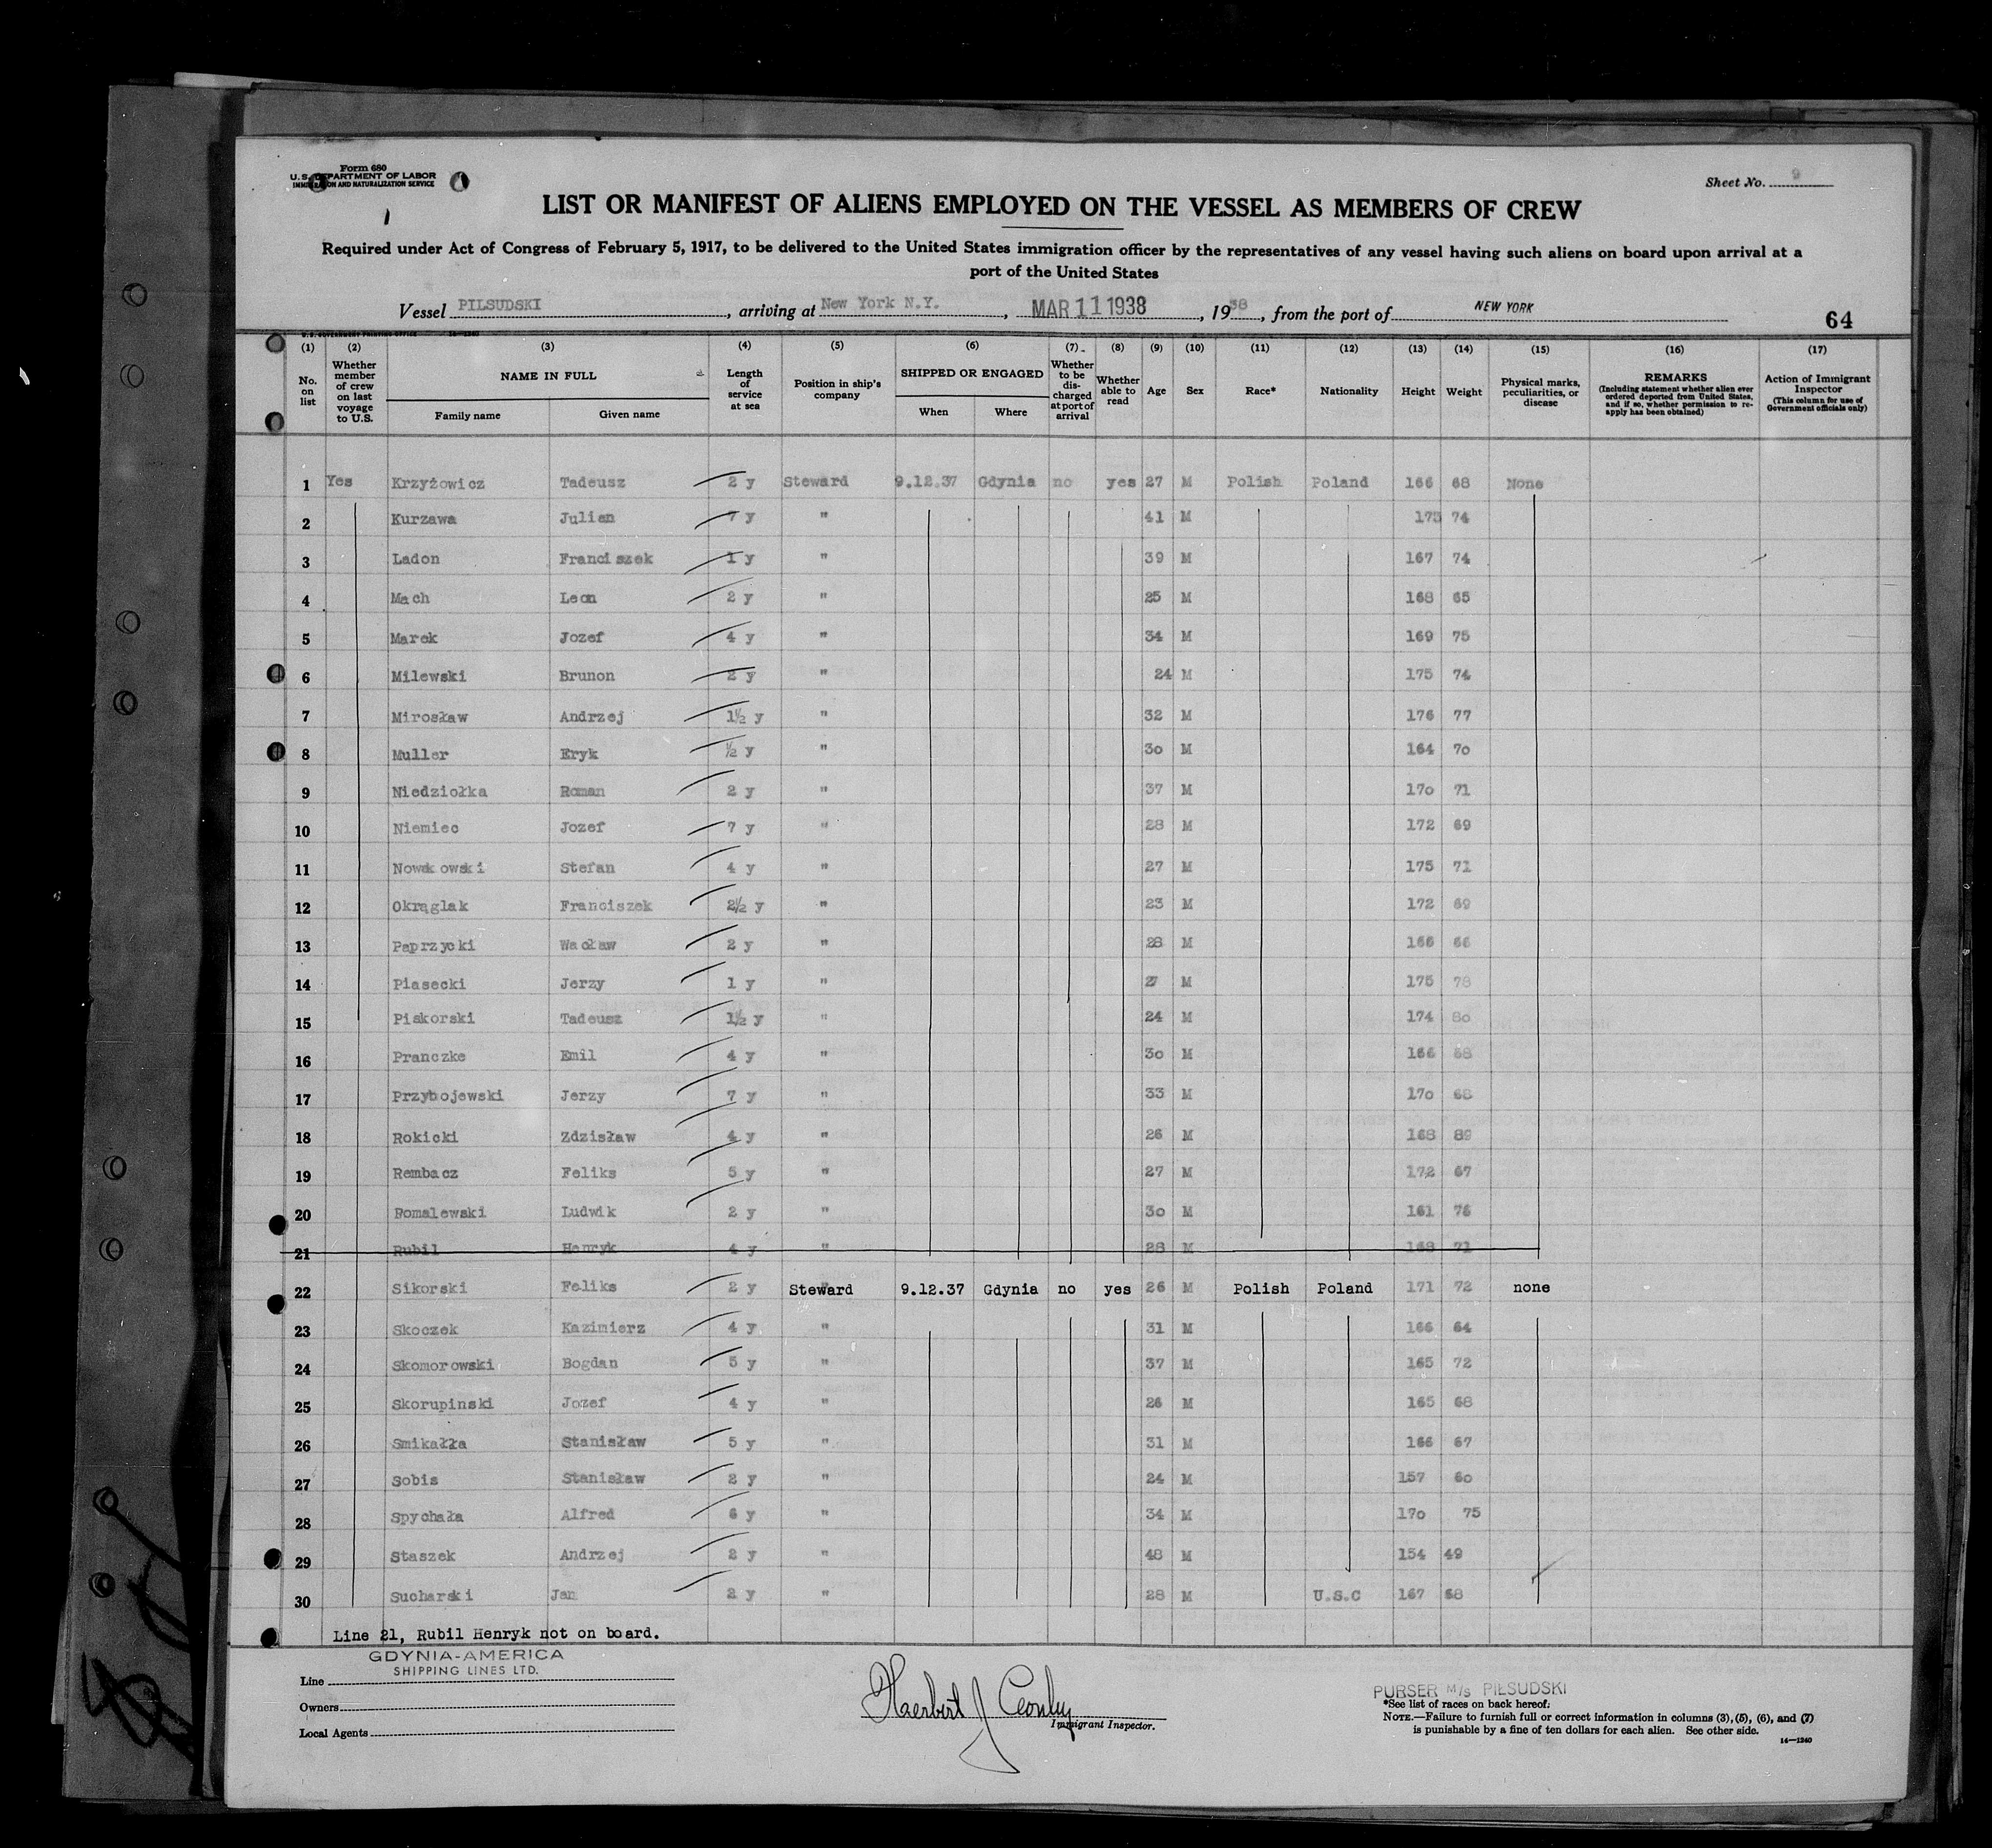 Form 680
U.S. DEPARTMENT OF LABOR
IMMIGRATION AND NATURALIZATION SERVICE
Sheet No. 9
LIST OR MANIFEST OF ALIENS EMPLOYED ON THE VESSEL AS MEMBERS OF CREW
Required under Act of Congress of February 5, 1917, to be delivered to the United States immigration officer by the representatives of any vessel having such aliens on board upon arrival at a
port of the United States
Vessel PILSUDSKI, arriving at New York N.Y., MAR 11 1938, 1938, from the port of NEW YORK
64
U.S. GOVERNMENT PRINTING OFFICE 14-1240
(1) No. on list (2) Whether member of crew on last voyage to U.S. (3) NAME IN FULL Family name Given name (4) Length of service at sea (5) Position in ship's company (6) SHIPPED OR ENGAGED When Where (7) Whether to be discharged at port of arrival (8) Whether able to read (9) Age (10) Sex (11) Race* (12) Nationality (13) Height (14) Weight (15) Physical marks, peculiarities, or disease (16) REMARKS (Including statement whether alien ever ordered deported from United States, and if so, whether permission to re-apply has been obtained) (17) Action of Immigrant Inspector (This column for use of Government officials only)
1 Yes Krzyżowicz Tadeusz 2 y Steward 9.12.37 Gdynia no yes 27 M Polish Poland 166 68 None
2 Kurzawa Julian 7 y " 41 M 173 74
3 Ladon Franciszek 1 y " 39 M 167 74
4 Mach Leon 2 y " 25 M 168 65
5 Marek Jozef 4 y " 34 M 169 75
6 Milewski Brunon 2 y " 24 M 175 74
7 Mirosław Andrzej 1½ y " 32 M 176 77
8 Muller Eryk ½ y " 30 M 164 70
9 Niedziołka Roman 2 y " 37 M 170 71
10 Niemiec Jozef 7 y " 28 M 172 69
11 Nowakowski Stefan 4 y " 27 M 175 71
12 Okrąglak Franciszek 2½ y " 23 M 172 69
13 Paprzycki Wacław 2 y " 28 M 166 66
14 Piasecki Jerzy 1 y " 27 M 175 78
15 Piskorski Tadeusz 1½ y " 24 M 174 80
16 Pranczke Emil 4 y " 30 M 166 68
17 Przybojewski Jerzy 7 y " 33 M 170 68
18 Rokicki Zdzisław 4 y " 26 M 168 89
19 Rembacz Feliks 5 y " 27 M 172 67
20 Romalewski Ludwik 2 y " 30 M 161 76
21 Rubil Henryk 4 y " 28 M 168 71
22 Sikorski Feliks 2 y Steward 9.12.37 Gdynia no yes 26 M Polish Poland 171 72 none
23 Skoczek Kazimierz 4 y " 31 M 166 64
24 Skomorowski Bogdan 5 y " 37 M 165 72
25 Skorupinski Jozef 4 y " 26 M 165 68
26 Smikałła Stanisław 5 y " 31 M 166 67
27 Sobis Stanisław 2 y " 24 M 157 60
28 Spychała Alfred 6 y " 34 M 170 75
29 Staszek Andrzej 2 y " 48 M 154 49
30 Sucharski Jan 2 y " 28 M U.S.C 167 68
Line 21, Rubil Henryk not on board.
GDYNIA-AMERICA
SHIPPING LINES LTD.
Line
Owners
Local Agents
Immigrant Inspector.
PURSER M/S PIŁSUDSKI
*See list of races on back hereof.
NOTE.—Failure to furnish full or correct information in columns (3), (5), (6), and (7)
is punishable by a fine of ten dollars for each alien. See other side.
14—1240